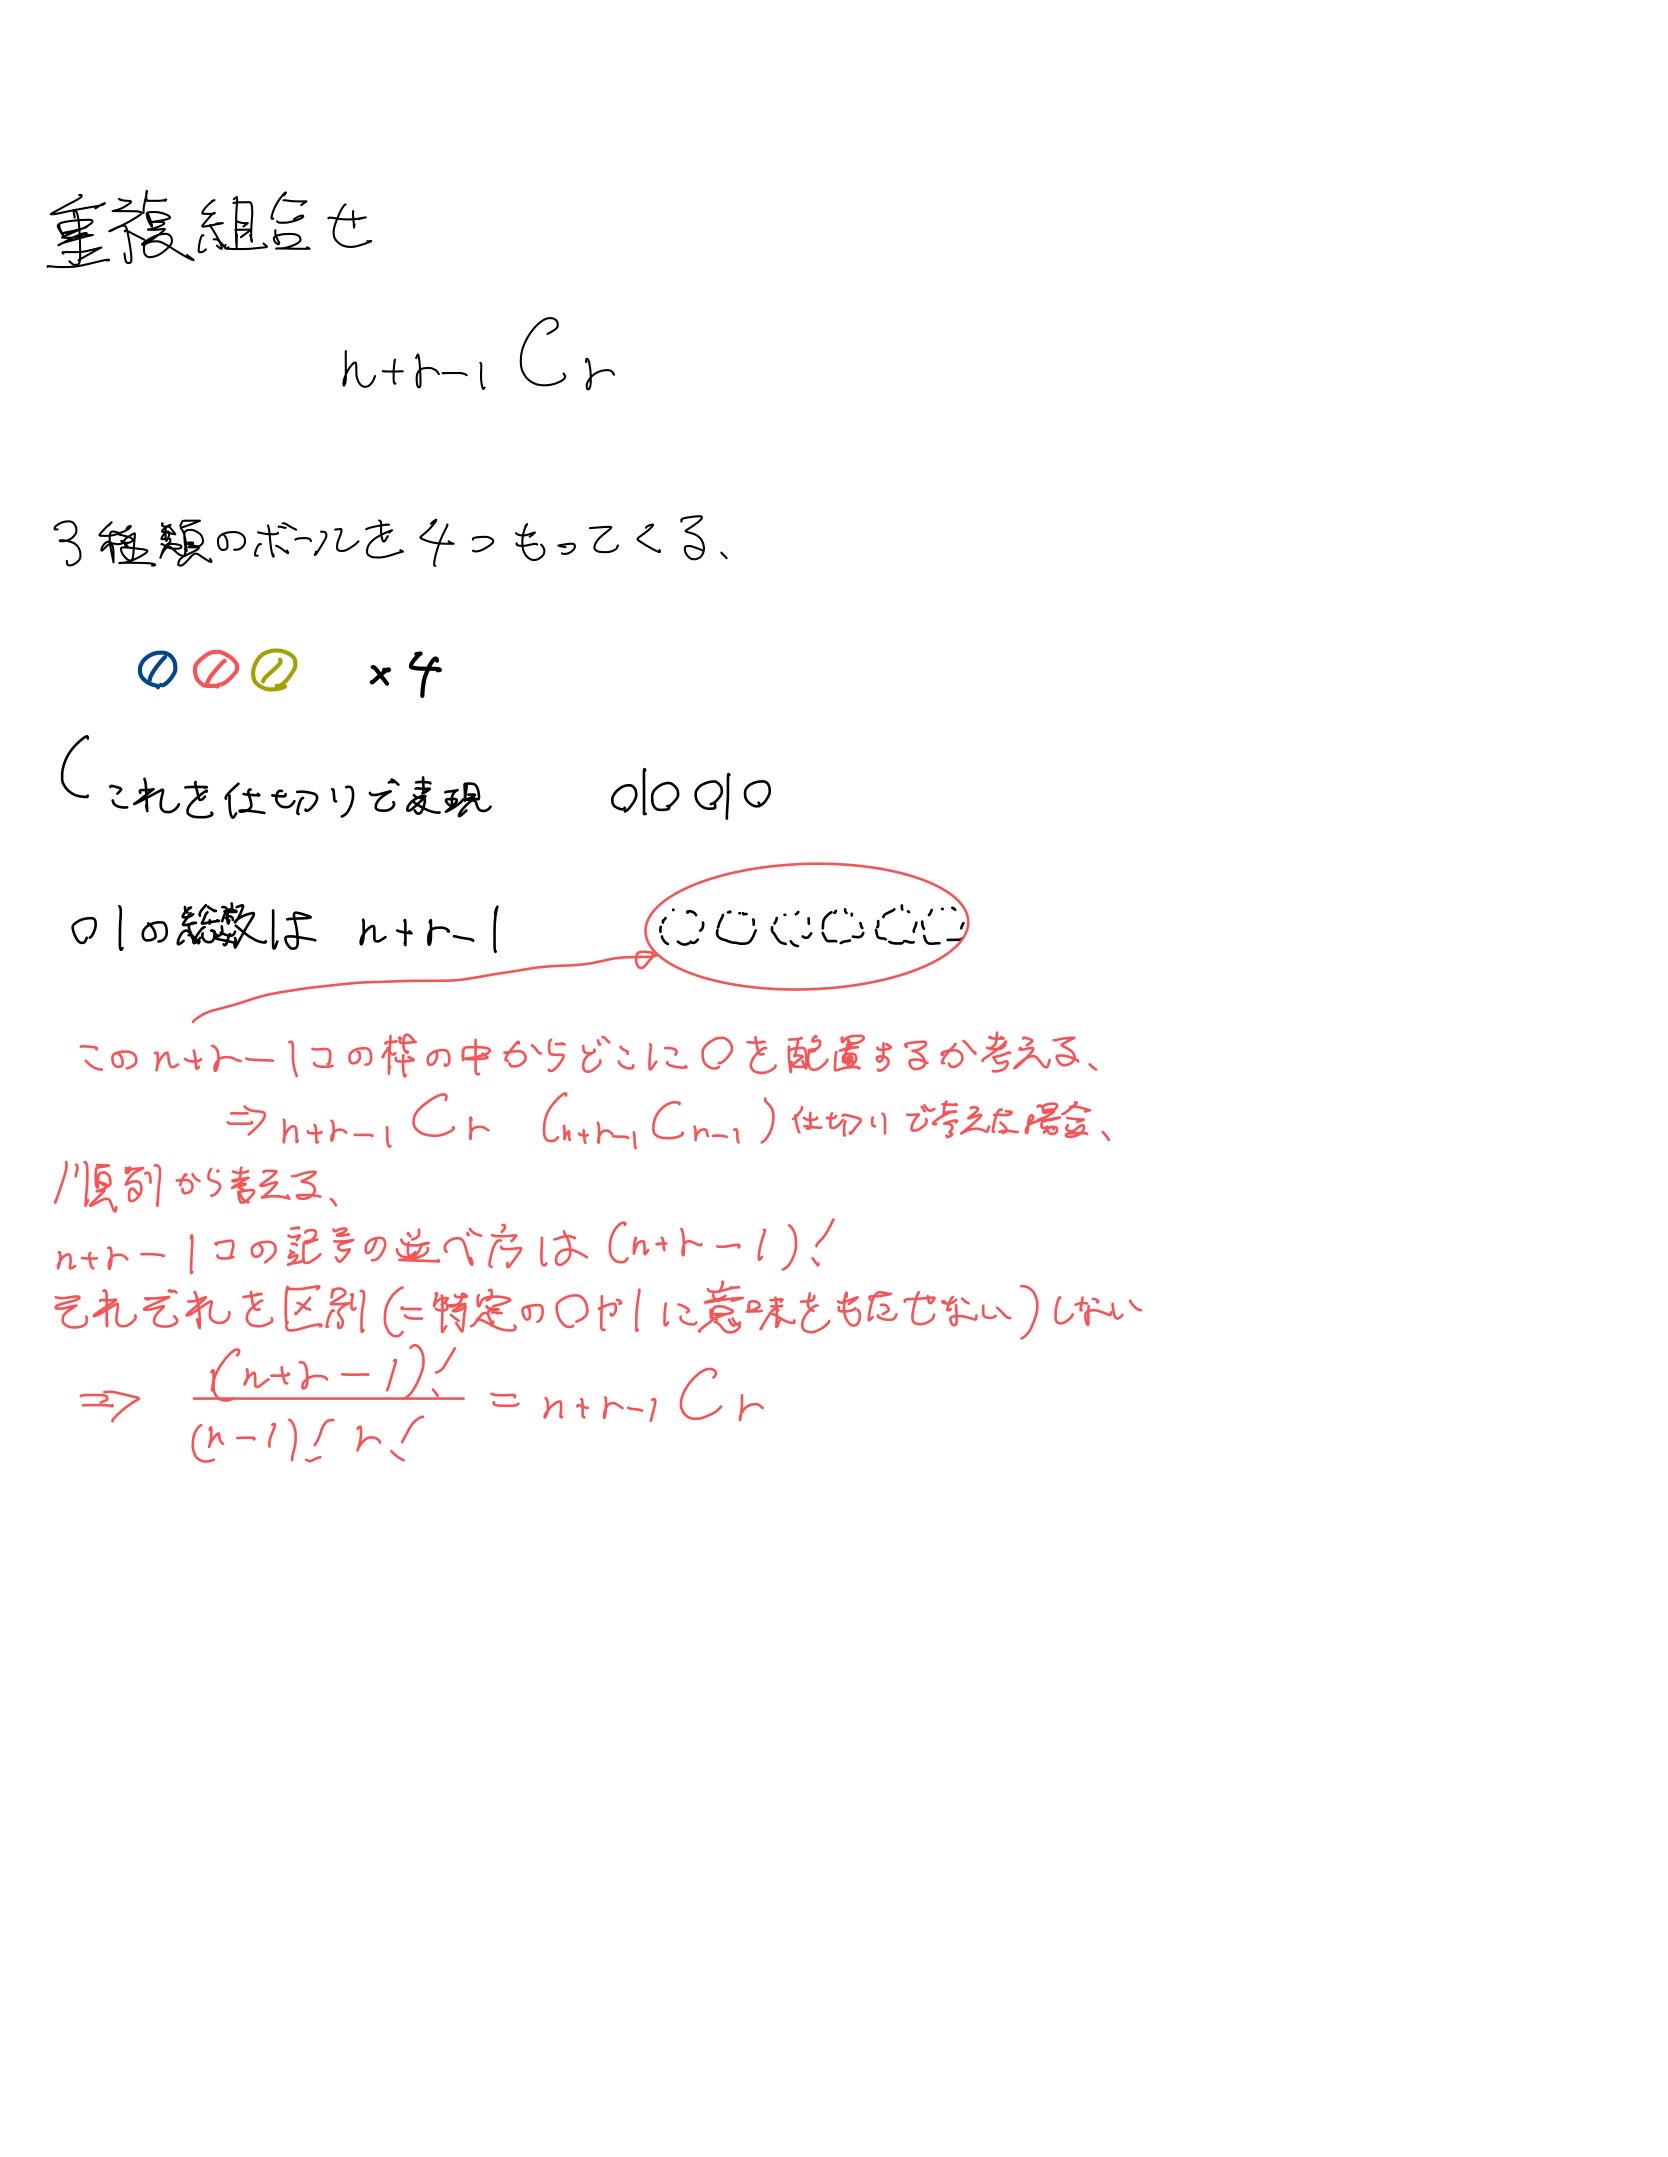 重複組合せ
n+r-1 C r
3種類のボールを4つもってくる、
×4
これを仕切りで表現 ○|○○|○
○|の総数は n+r-1
このn+r-1コの枠の中からどこに○を配置するか考える、
⇒ n+r-1 C r (n+r-1 C n-1) 仕切りで考えた場合、
順列から考える、
n+r-1コの記号の並べ方は(n+r-1)!
それぞれを区別(=特定の○や|に意味をもたせない)しない
⇒ (n+r-1)! / (n-1)! r! = n+r-1 C r